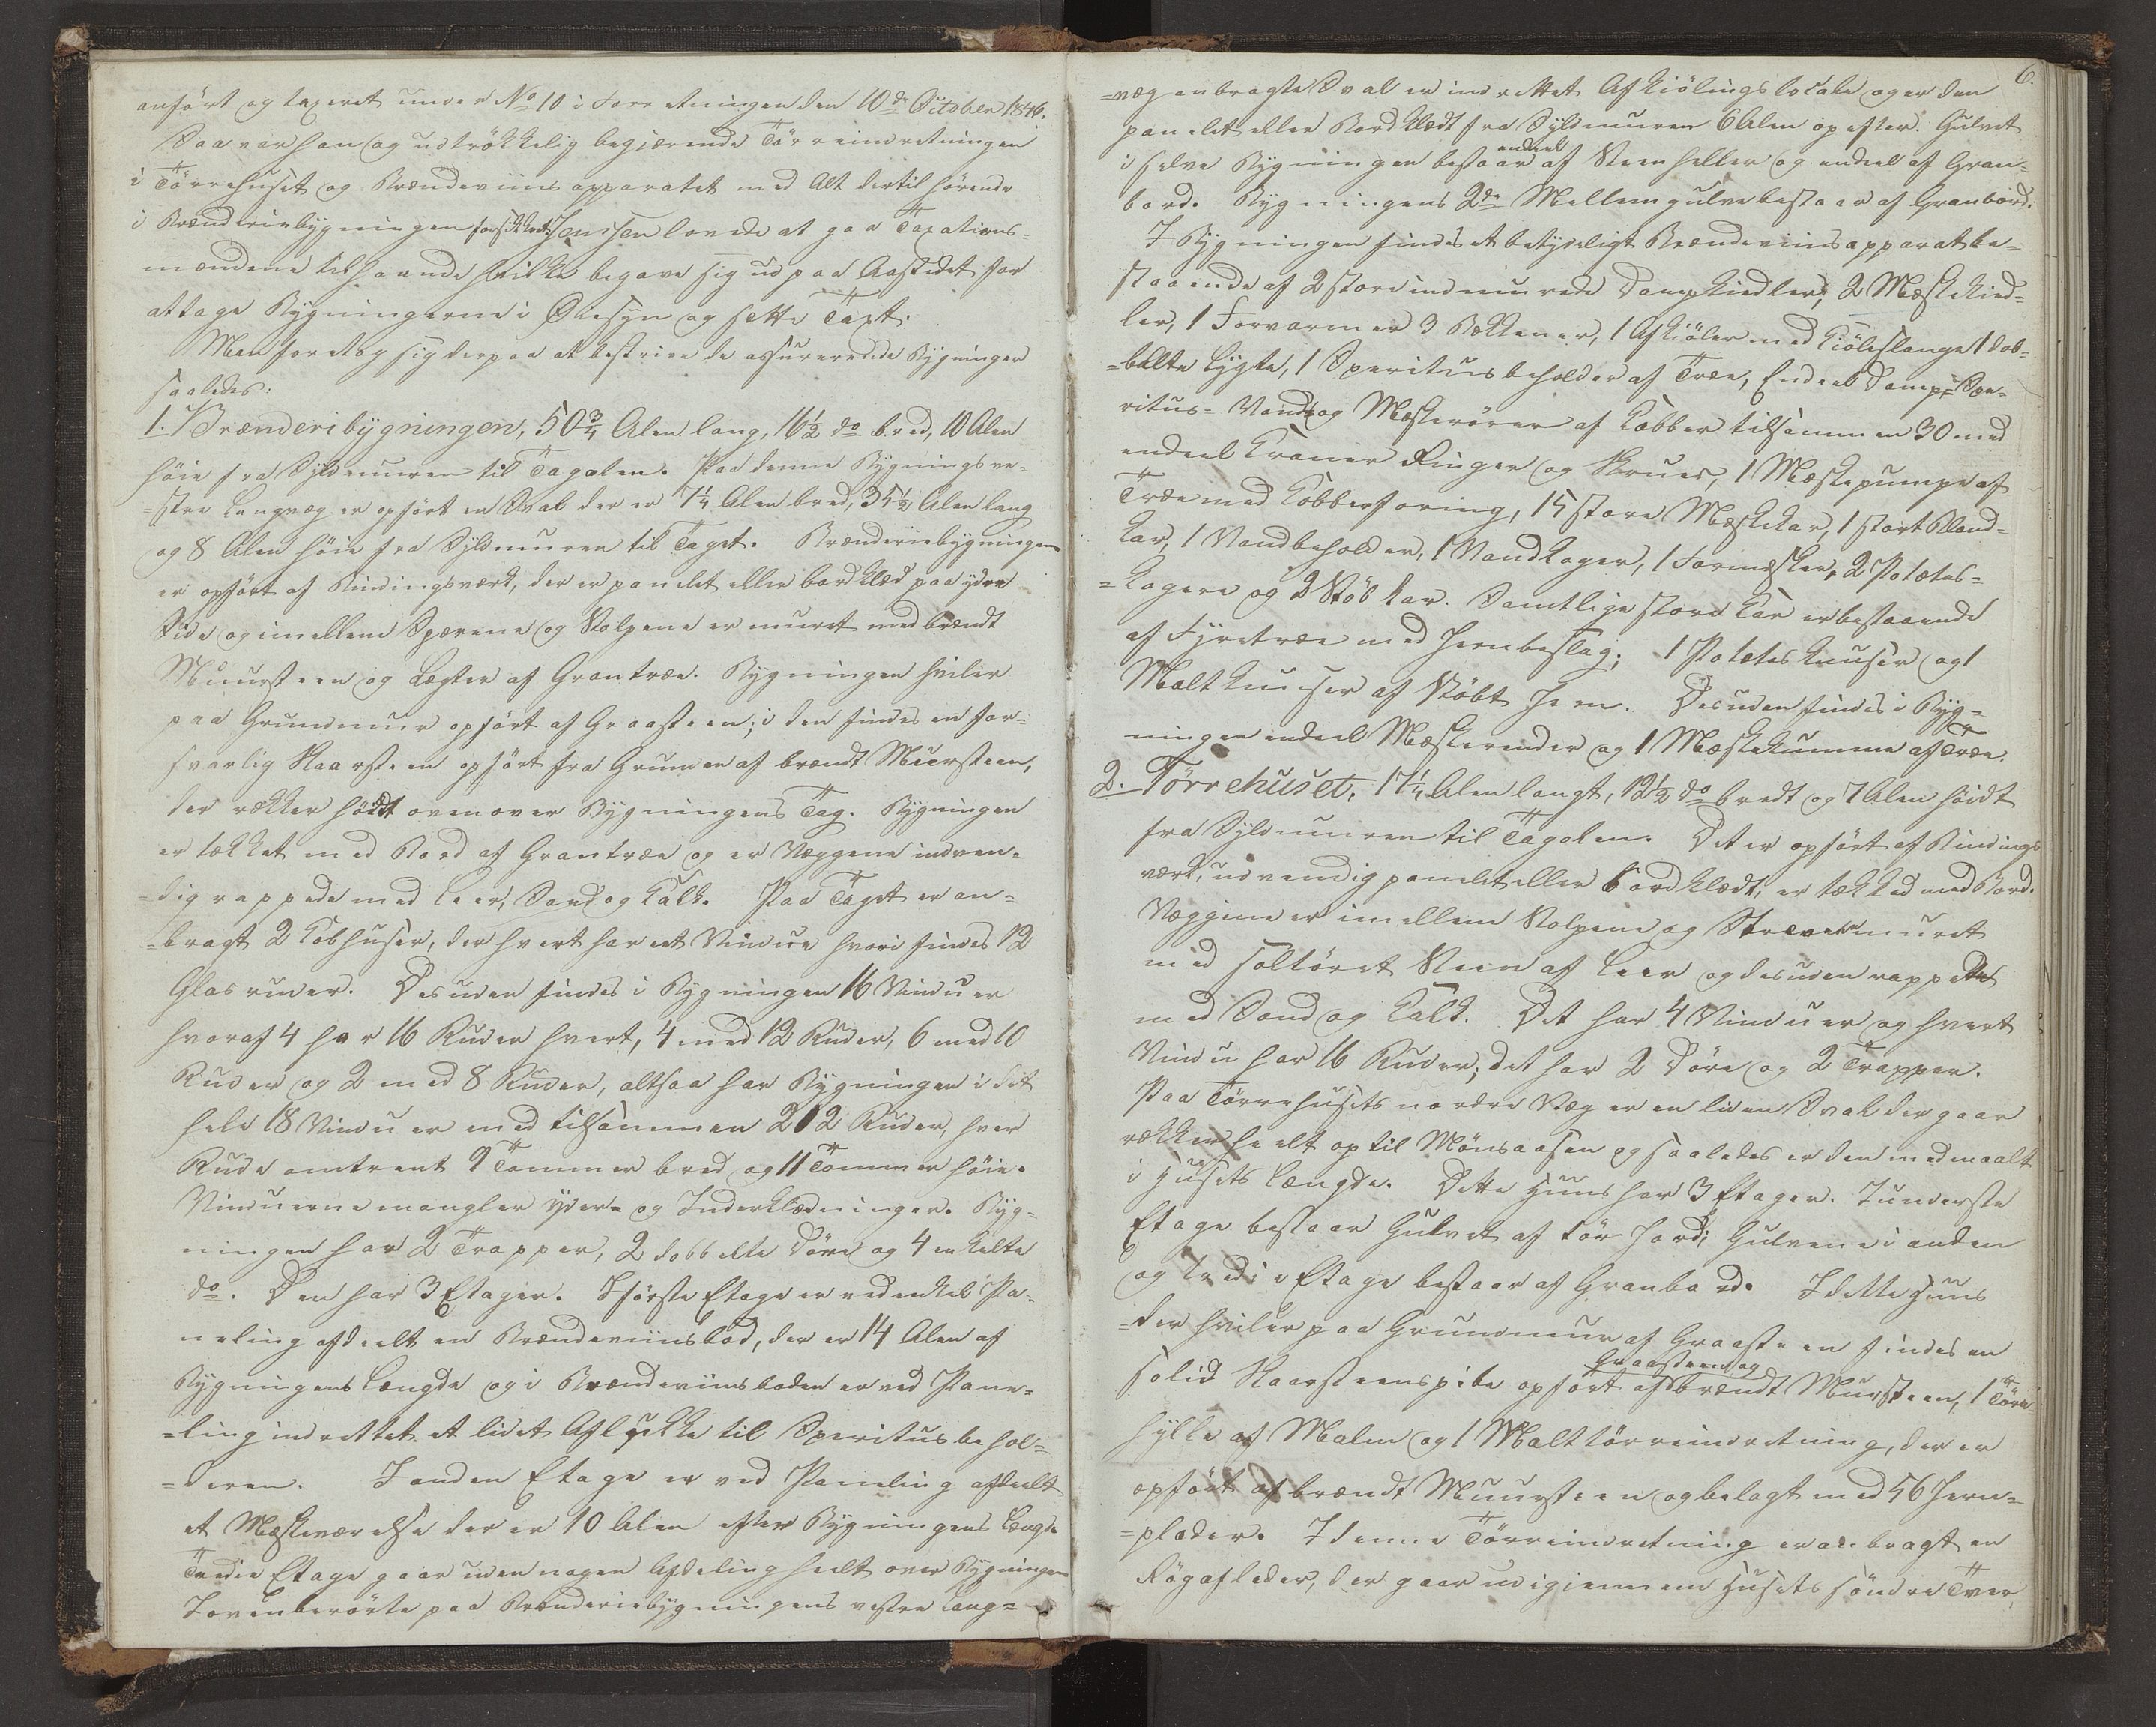 anført og taxeret under No 10 i Forretningen den 10de October 1846.
Saa var han og udtrøkkelig begjærende Tørreindretningen
i Tørrehuset og Brændeviinsapparatet med Alt dertil hørende
i Brænderiebygningen forsikkret. Jenssen lovede at gaa Taxations-
mændene tilhaande hvilke begave sig ud paa Aastedet for
at tage Bygningerne i Øiesyn og sætte Taxt.
Man foretog sig derpaa at beskrive de assurerede Bygninger
saaledes:
1. Brænderibygningen, 50 3/4 Alen lang, 16 1/2 do bred, 10 Alen
høie fra Syldmuren til Tagalen. Paa denne Bygnings ve-
=stre Langvæg er opført en Sval der er 7 1/4 Alen bred, 35 1/2 Alen lang
og 8 Alen høie fra Syldmuren til Taget. Brænderiebygningen
er opført af Bindingsværk, der er panelet eller bordklæd paa ydre
Side og imellem Sperrene og Stolpene er muret med brændt
Muursteen og Lægter af Grantræe. Bygningen hviler
paa Grundmuur opført af Graasteen; i den findes en for-
svarlig Skaarsteen opført fra Grunden af brændt Muursteen,
der rækker høidt ovenover Bygningens Tag. Bygningen
er tækket med Bord af Grantræe og er Væggene indven-
=dig rappede med Leer, Sand og Kalk. Paa Taget er an-
=bragt 2 Kobhuser, der hvert har eet Vindue hvori findes 12
Glasruder. Desuden findes i Bygningen 16 Vinduer
hvoraf 4 har 16 Ruder hvert, 4 med 12 Ruder, 6 med 10
Ruder og 2 med 8 Ruder, altsaa har Bygningen i det
hele 18 Vinduer med tilsammen 212 Ruder, hver
Rude omtrent 9 Tommer bred og 11 Tommer høie.
Vinduerne mangler Yder- og Inderklædninger. Byg-
ningen har 2 Trapper, 2 dobbelte Døre og 4 enkelte
do. Den har 3 Etager. I første Etage er ved enkel Pa-
neling afdeelt en Brændeviinsbod, der er 14 Alen af
Bygningens Længde og i Brændeviinsboden er ved Pane-
=ling indrettet et lidet Aflukke til Speritusbehol-
=deren. I anden Etage er ved Paneling afdeelt
et Mæskeværelse der er 10 Alen efter Bygningens Længde
Tredie Etage gaar uden nogen Afdeling heelt over Bygningen
I ovenberørte paa Brænderiebygningens vestre Lang-
6.
=væg anbragte Sval er indrettet Afkiølingslocale og er den
panelet eller Bordklædt fra Syldmuren 6 Alen opefter. Gulvet
i selve Bygningen bestaar endeel af Steenheller og endeel af Gran-
bord. Bygningens 2de Mellemgulve bestaar af Granbord.
I Bygningen findes et betydeligt Brændeviinsapparat be-
staaende af 2 store indmurede Dampkiedler, 2 Mæskekied-
ler, 1 Forvarmer 3 Bækkener, 1 Afkiøler med Kiøleslange 1 dob-
=belte Lygte, 1 Speritusbeholder af Træe, Endeel Damp- Spe-
ritus- Vand og Mæskerører af Kobber tilsammen 30 med
endeel Kraner Ringer og Skruer, 1 Mæskepumpe af
Træe med Kobberforing, 15 store Mæskekar, 1 stort Bland-
kar, 1 Vandbeholder, 1 Vandkoger, 1 Formæsker, 2 Potetes-
=kogere og 2 Støbkar. Samtlige store Kar er bestaaende
af Fyretræe med Jernbeslag; 1 Potetesknuser og 1
Maltknuser af støbt Jern. Desuden findes i Byg-
ningen endeel Mæskerender og 1 Mæskekumme af Træe.
2. Tørrehuset, 17 1/4 Alen langt, 12 1/2 do bredt og 7 Alen høidt
fra Syldmuren til Tagalen. Det er opført af Bindings
værk, udvendig panelet eller bordklædt, er tækked med Bord.
Væggene er imellem Stolpene og muret
med soltørret Steen af Leer og desuden rappede
med Sand og Kalk. Det har 4 Vinduer og hvert
Vindu har 16 Ruder; det har 2 Døre og 2 Trapper.
Paa Tørrehusets nordre Væg er en liden Sval der gaar
rækker heelt op til Mønsaasen og saaledes er den medmaalt
i Husets Længde. Dette Huus har 3 Etager. I underste
Etage bestaar Gulvet af tør Jord; Gulvene i anden
og tredie Etage bestaar af Granbord. I dette Huus
=der hviler paa Grundmuur af Graasteen findes en
solid Skaarsteenspibe opført af Graasteen og brændt Mursteen, 1 Tørre-
hylle af Malm og 1 Malttørreindretning, der er
opført af brændt Muursteen og belagt med 56 Jern-
=plader. I denne Tørreindretning er anbragt en
Røgafleder, der gaar ud igjennem Husets søndre Tver